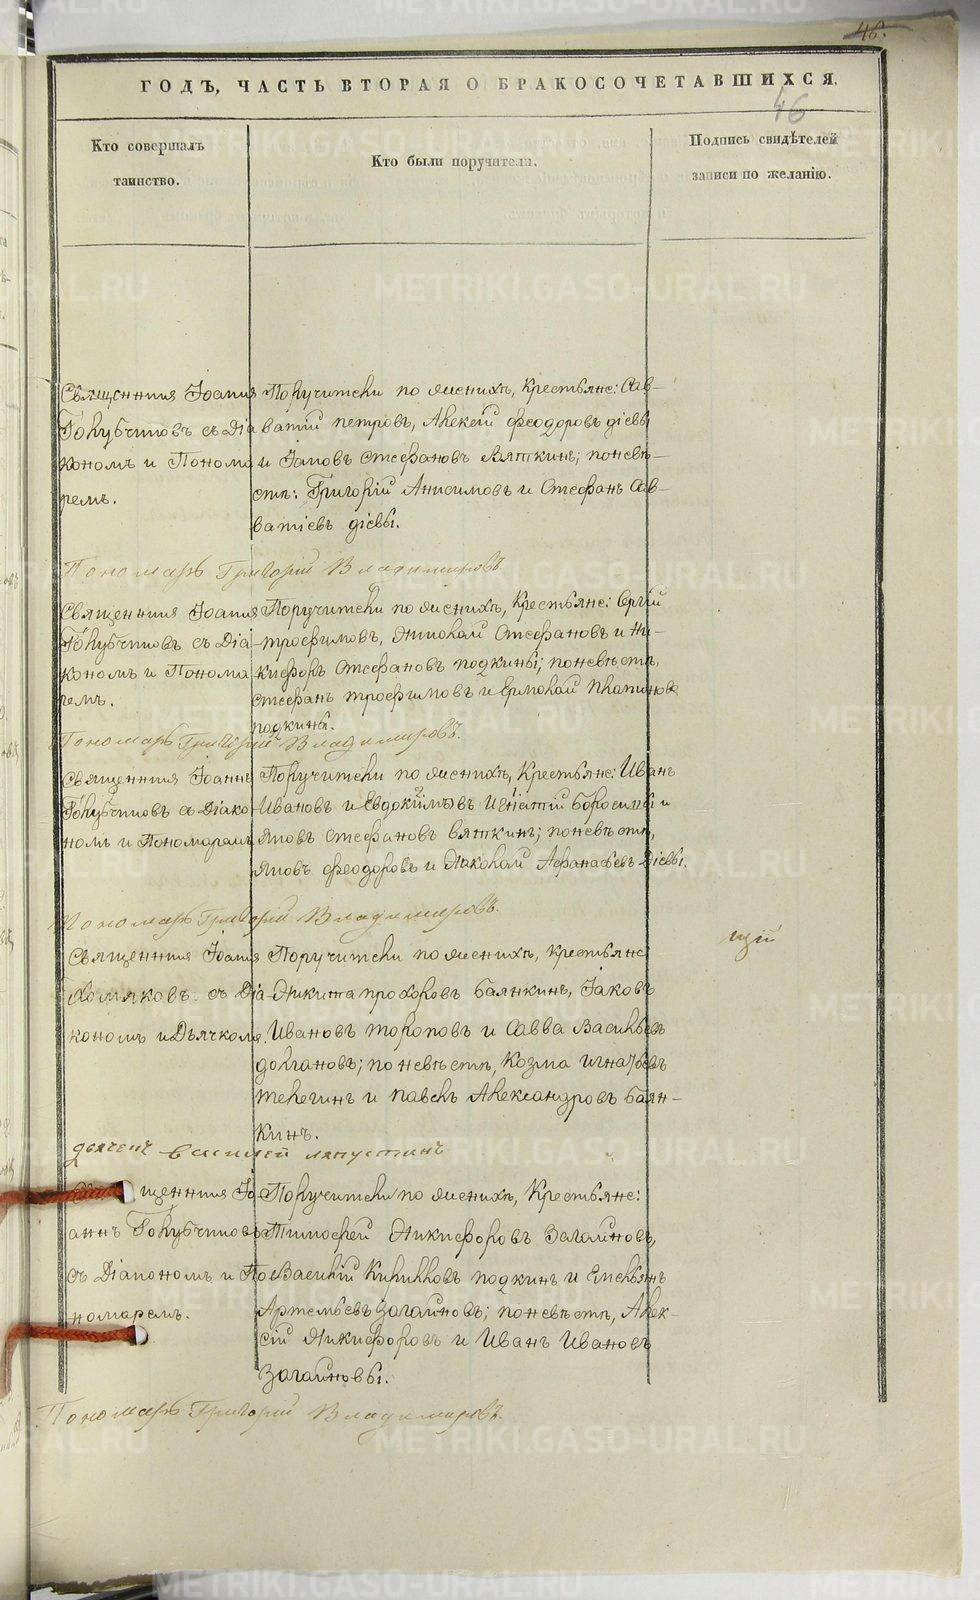 46.
ГОДЪ, ЧАСТЬ ВТОРАЯ О БРАКОСОЧЕТАВШИХСЯ.
46
Кто совершалъ
таинство.
Кто были поручители.
Подпись свидѣтелей
записи по желанію.
Священникъ Іоаннъ
Голубчиковъ съ Діа
кономъ и Понома
ремъ.
Поручители по женихѣ, Крестьяне: Сав-
ватій петровъ, Алексѣй феодоровъ діевы
и Іаковъ Стефановъ Вяткинъ; по невѣ-
стѣ: Григорій Анисимовъ и Стефанъ Сав-
ватіевъ діевы.
Пономарь Григорій Владимировъ
Священникъ Іоаннъ
Голубчиковъ съ Діа-
кономъ и Понома
ремъ.
Поручители по женихѣ, Крестьяне: Сергій
трофимовъ, Николай Стефановъ и Ни-
кифоръ Стефановъ подкины; по невѣстѣ,
стефанъ трофимовъ и Ермолай Платоновъ
подкины.
Пономарь Григорій Владимировъ.
Священникъ Іоаннъ
Голубчиковъ съ Діако-
номъ и Пономаремъ
Поручители по женихѣ, Крестьяне: Иванъ
Ивановъ и Евдокимовъ Игнатій и
Яковъ стефановъ вяткинъ; по невѣстѣ,
Яковъ феодоровъ и Николай Афанасьевъ Діевы.
Пономарь Григорій Владимировъ.
Священникъ Іоаннъ
Хомяковъ съ Діа-
кономъ и Дьячкомъ.
Поручители по женихѣ, крестьяне
Никита прохоровъ баянкинъ, Іаковъ
Ивановъ тороповъ и Савва Васильевъ
долгановъ; по невѣстѣ, Козма игнатьевъ
телегинъ и павелъ Александровъ баян-
кинъ.
щій
дьячекъ василей лапустинъ
Священникъ Іо
аннъ Голубчиковъ
съ Діакономъ и По
номаремъ.
Поручители по женихѣ, Крестьяне:
Тимофей Никифоровъ Загайновъ,
Василій Кириловъ подкинъ и Емельянъ
Артемьевъ Загайновъ; по невѣстѣ, Алек-
сій Никифоровъ и Иванъ Ивановъ
Загайновы.
Пономарь Григорій Владимировъ.
METRIKI.GASO-URAL.RU